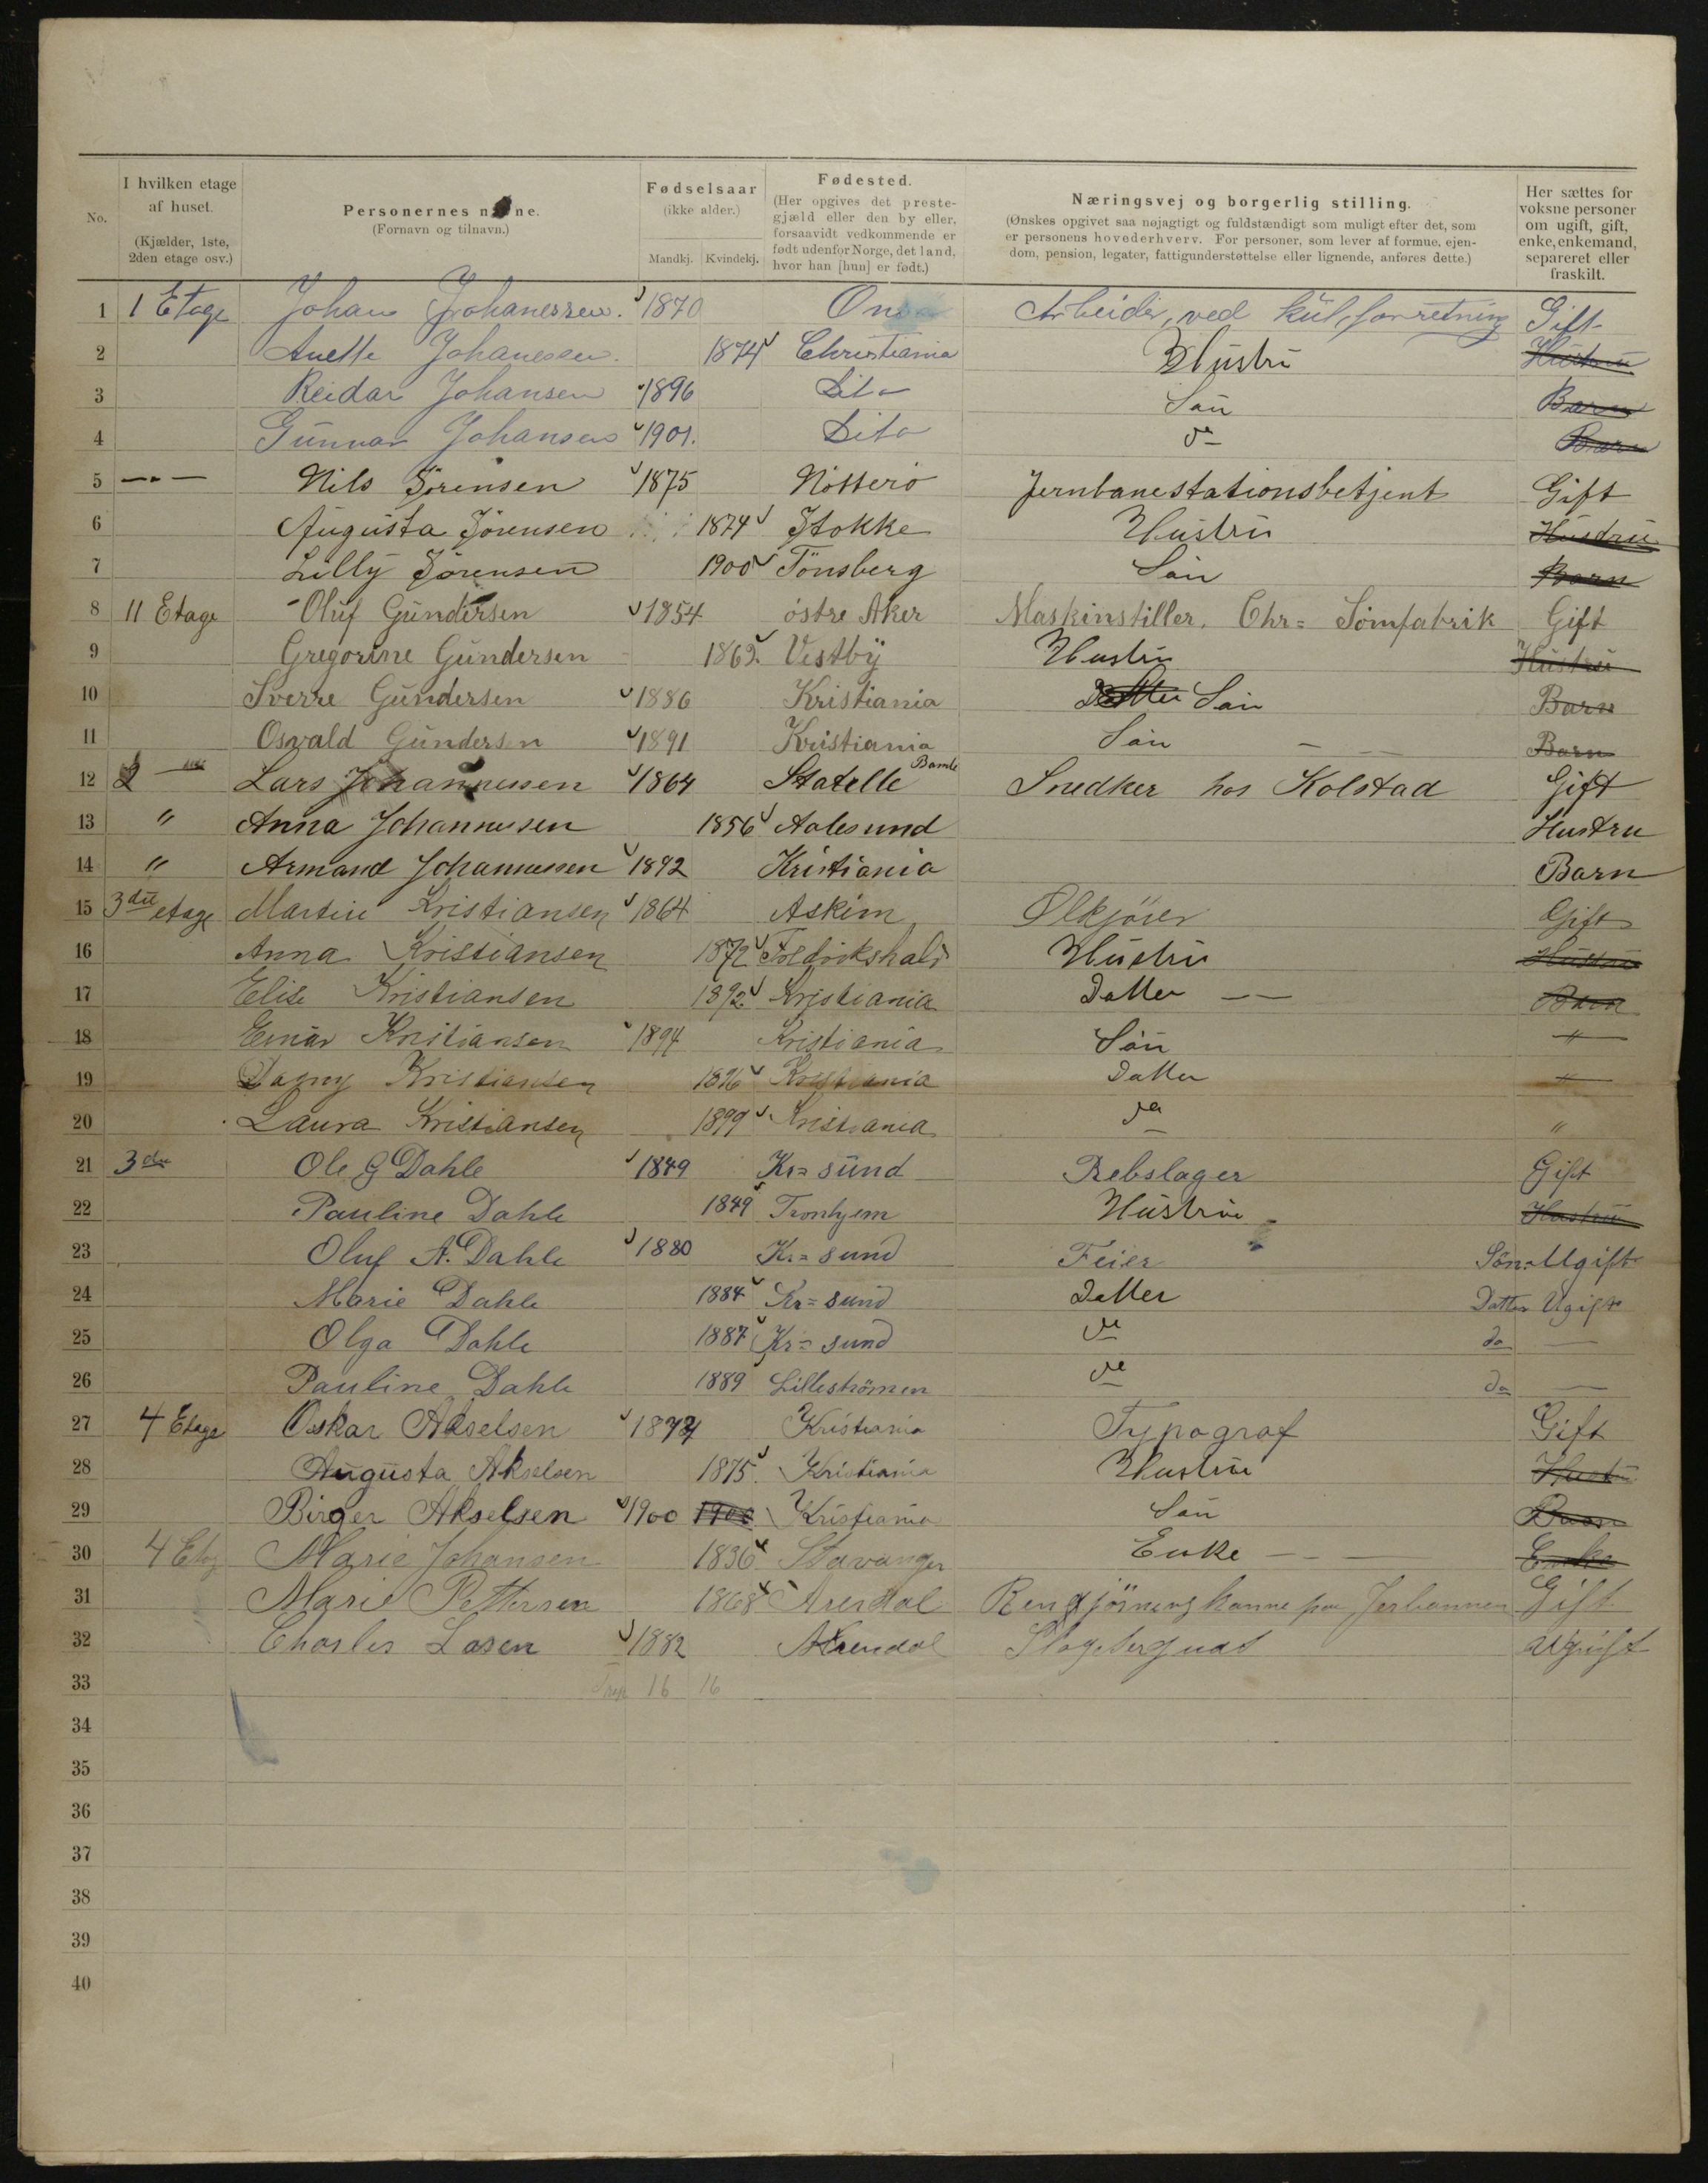 No. I hvilken etage af huset. (Kjælder, 1ste, 2den etage osv.) Personernes navne. (Fornavn og tilnavn.) Fødselsaar (ikke alder.) Mandkj. Kvindekj. Fødested. (Her opgives det prestegjæld eller den by eller, forsaavidt vedkommende er født udenfor Norge, det land, hvor han [hun] er født.) Næringsvej og borgerlig stilling. (Ønskes opgivet saa nøjagtigt og fuldstændigt som muligt efter det, som er personens hovederhverv. For personer, som lever af formue, ejendom, pension, legater, fattigunderstøttelse eller lignende, anføres dette.) Her sættes for voksne personer om ugift, gift, enke, enkemand, separeret eller fraskilt.
1 1 Etage Johan Johanessen. 1870 Arbeider, ved kul,forretning Gift
2 Anette Johanesen. 1874 Christiania Hustru Hustru
3 Reidar Johansen 1896 Dito Søn Barn
4 Gunnar Johansen 1901. Dito do Barn
5 —"— Nils Sörensen 1875 Nötterö Jernbanestationsbetjent Gift
6 Augusta Sörensen 1874 Stokke Hustru Hustru
7 Lilly Sörensen 1900 Tönsberg Søn Barn
8 11 Etage Oluf Gundersen 1854 östre Aker Maskinstiller. Chr= Sömfabrik Gift
9 Gregorine Gundersen 1862. Vestby Hustru Hustru
10 Sverre Gundersen 1886 Kristiania Datter Søn Barn
11 Osvald Gundersen 1891 Kristiania Søn — — Barn
12 2 Lars Johannessen 1864 Statelle Bamle Snedker hos Kolstad Gift
13 " Anna Johannesen 1856 Aalesund Hustru
14 " Armand Johannessen 1892 Kristiania Barn
15 3die etage Martin Kristiansen 1864 Askim Ølkjörer Gift
16 Anna Kristiansen 1872 Fredrikshald Hustru Hustru
17 Elise Kristiansen 1892 Kristiania Datter — Barn
18 Einar Kristiansen 1894 Kristiania Søn "
19 Dagny Kristiansen 1896 Kristiania Datter "
20 Laura Kristiansen 1899 Kristiania do "
21 3die Ole G Dahle 1849 Kr= sund Rebslager Gift
22 Pauline Dahle 1849 Tronhjem Hustru Hustru
23 Oluf A. Dahle 1880 Kr= sund Feier Sön= Ugift
24 Marie Dahle 1884 Kr= sund Datter Datter Ugift
25 Olga Dahle 1887 Kr= sund do do —
26 Pauline Dahle 1889 Lilleströmen do do —
27 4 Etage Oskar Akselsen 1874 Kristiania Typograf Gift
28 Augusta Akselsen 1875. Kristiania Hustru Hustru
29 Birger Akselsen 1900 1900 Kristiania Søn Barn
30 4 Etg Marie Johansen 1836 Stavanger Enke — — Enke
31 Marie Pettersen 1868 Arendal Rengjörningskonne paa Jerbannen Gift
32 Charles Lasen 1882 Arendal Ugift
33 16 16
34
35
36
37
38
39
40